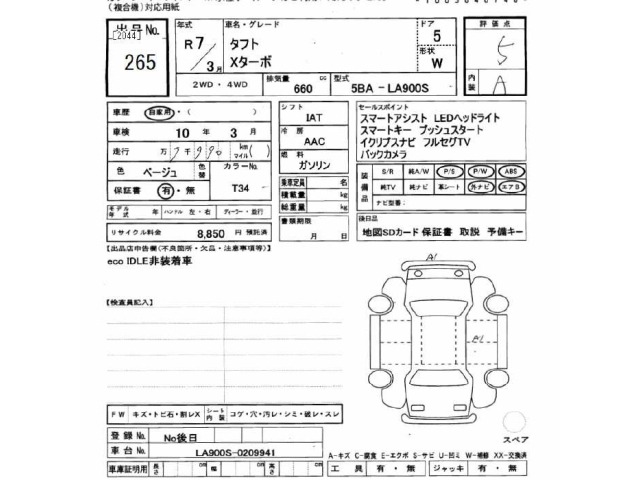 (複合機)対応用紙
出品No. 年式 車名・グレード ドア 評価点
[2044] R7/3月 タフト 5 5
265 Xターボ 形状 W 内装 A
2WD・4WD 排気量 660 cc 型式 5BA - LA900S
車歴 自家用・( ) シフト IAT セールスポイント
車検 10年 3月 冷房 AAC スマートアシスト LEDヘッドライト
スマートキー プッシュスタート
走行 万 千 km(マイル) 燃料 ガソリン イクリプスナビ フルセグTV
バックカメラ
色 ベージュ 色替 カラーNo. T34 乗車定員 名
保証書 有・無 積載量 kg
総重量 kg
装備品 S/R 純A/W P/S P/W ABS
純TV 純ナビ 革シート 外ナビ エアB
ナビ型番:
モデル年式 年 ハンドル 左・右 ディーラー・並行 書類期限 月 日
リサイクル料金 8,850 円 預託済 後日品
地図SDカード 保証書 取説 予備キー
【出品店申告欄(不良箇所・欠品・注意事項等)】
eco IDLE非装着車
A1
【検査員記入】
A1
FW キズ・トビ石・割レX シート内装 コゲ・穴・汚レ・シミ・破レ・スレ
登録No. No後日 スペア
車台No. LA900S-0209941
A-キズ C-腐食 E-エクボ S-サビ U-凹ミ W-補修 XX-交換済
車庫証明用 長さ cm 幅 cm 高さ cm 工具 有・無 ジャッキ 有・無